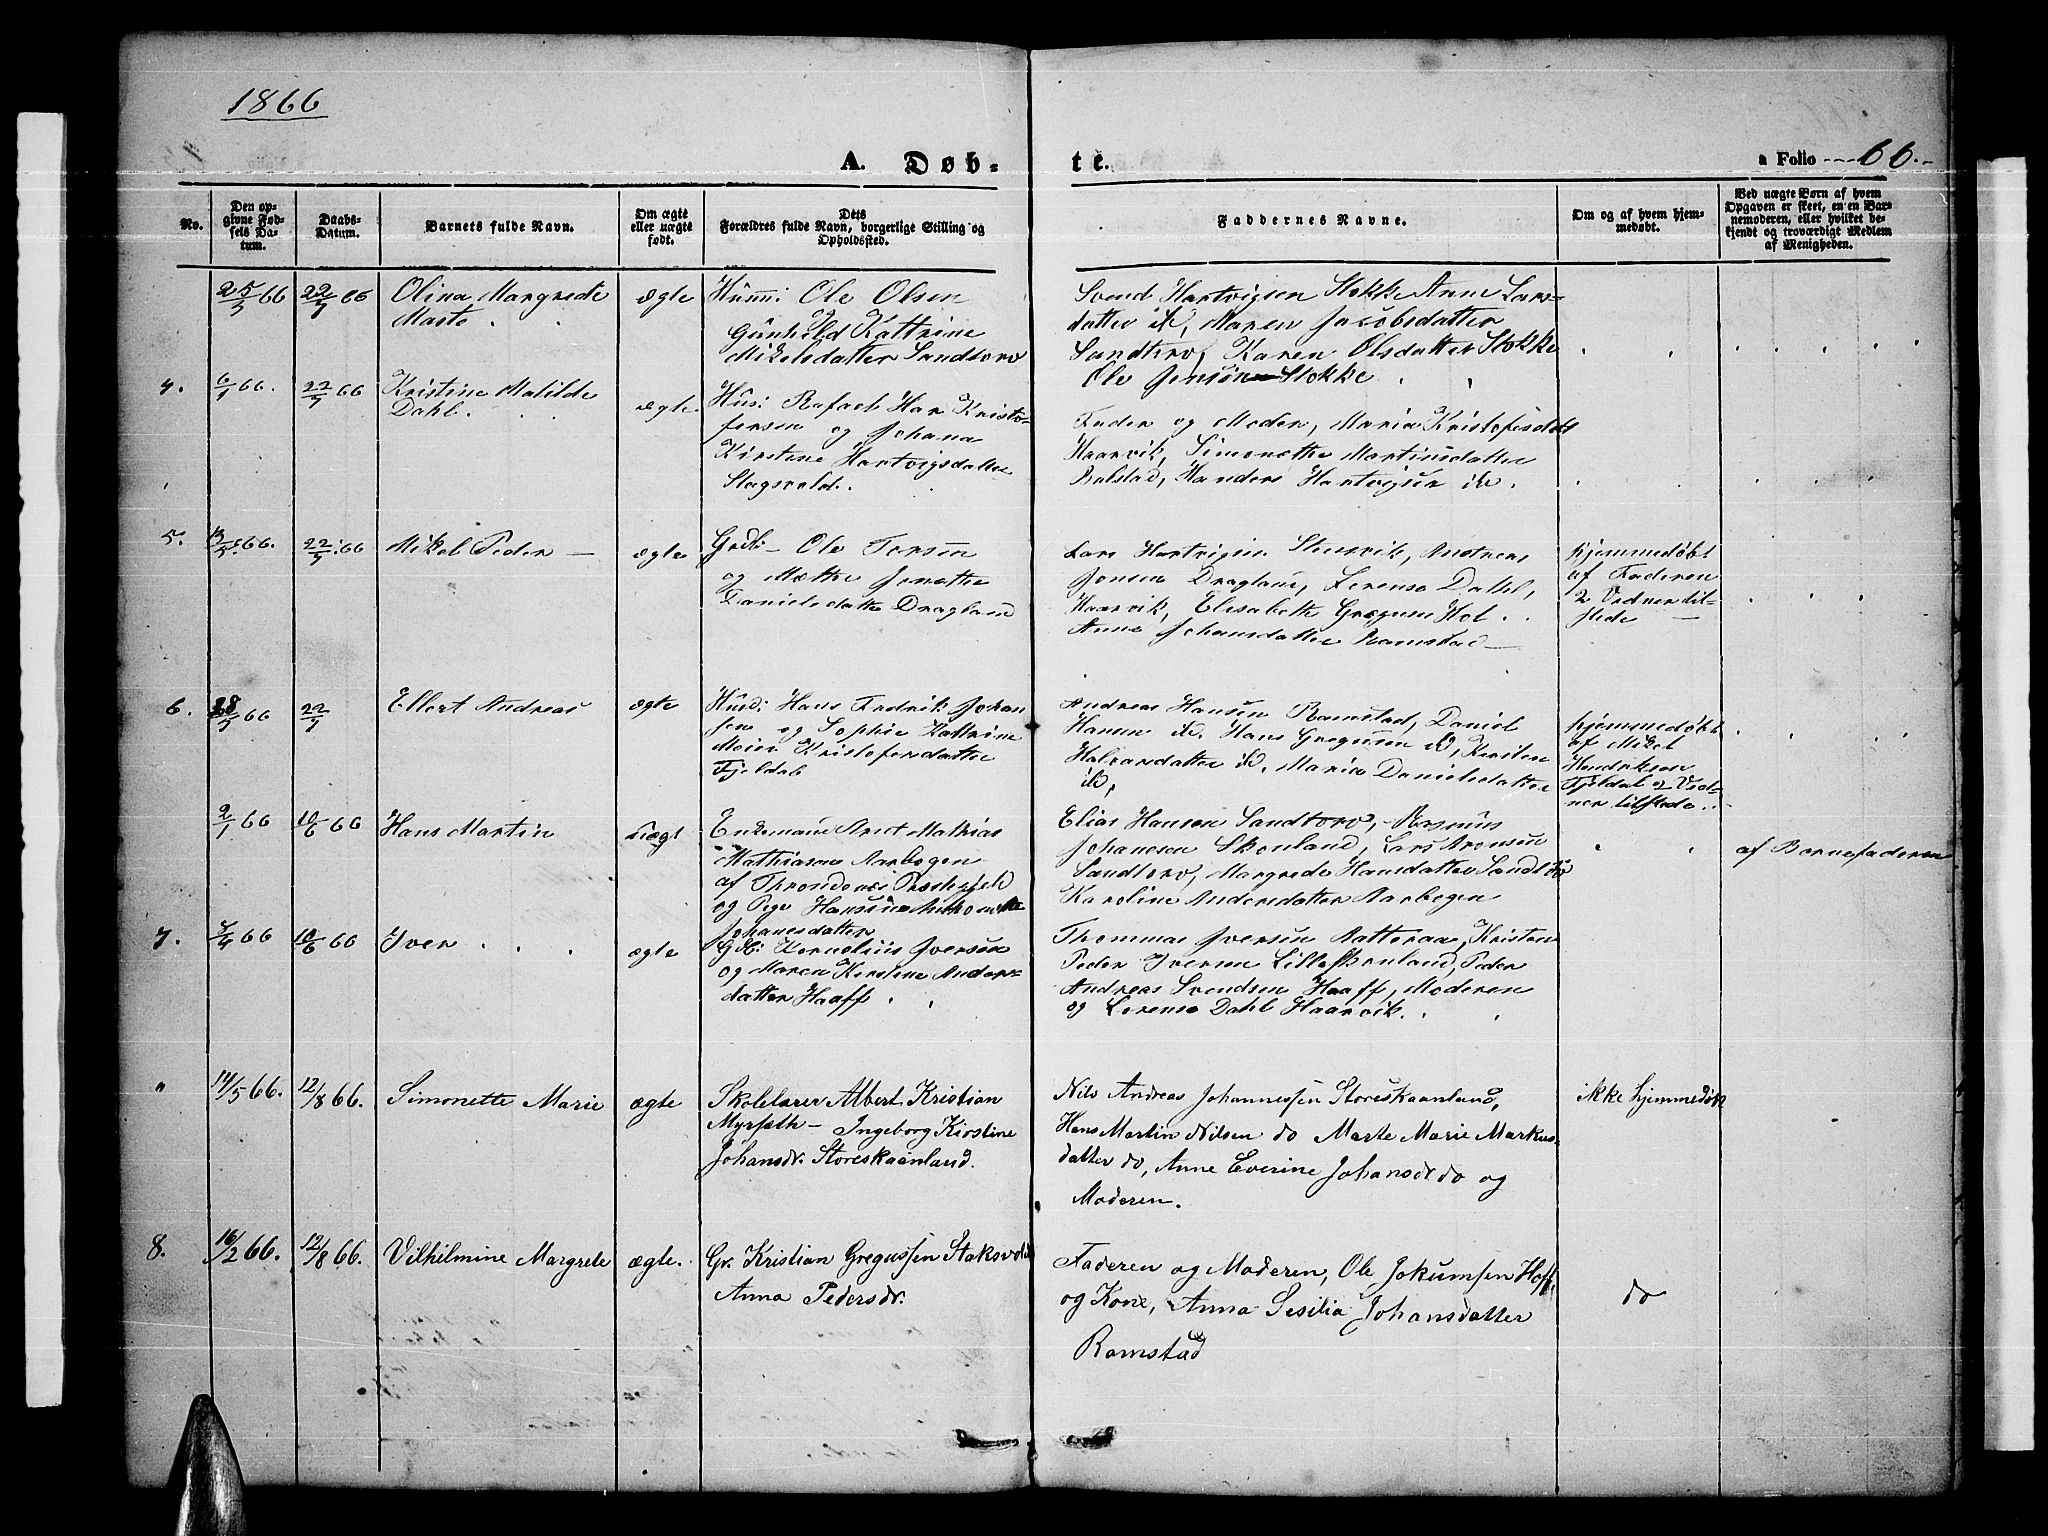 1866
A. Døb-
te.
a Folio 66.
No.
Den op-
givne Fød-
sels Da-
tum.
Daabs-
Datum.
Barnets fulde Navn.
Om ægte
eller uægte
født.
Dets
Forældres fulde Navn, borgerlige Stilling og
Opholdssted.
Faddernes Navne.
Om og af hvem hjem-
medøbt.
Ved uægte Børn af hvem
Opgaven er skeet, en en Bar-
nemoderen, eller hvilket be-
kjendt og troværdigt Medlem
af Menigheden.
25/5 66
22/7 66
Olina Margrede
Marte
ægte
Huum: Ole Olsen
og
Gunhild Kattrine
Mikelsdatter Sandtorv
Svend Hartvigsen Stokke Anne Lars-
datter ib, Maren Jacobsdatter
Sandtorv, Karen Olsdatter Stokke
Ole Jensøn Stokke
4.
6/1 66.
22/7 66
Kristine Matilde
Dahl.
ægte
Hus: Rafael Har Kristo-
fersen og Johana
Kirstine Hartvigsdatter
Slagsvold.
Fader og Moder, Maria Kristofersdatt
Haarvik, Simonette Martinusdatter
Rulstad, Handers Hartvigsen ib.
5.
13/5 66.
22/7 66
Mikel Peder
ægte
Grdb: Ole Torsen
og Mætte Jonette
Danielsdatter Dragland
Lars Hartvigsen Stensvik, Andreas
Jonsen Dragland, Lorense Dahl,
Haarvik, Elisabeth Gregusen Hol
Anne Johansdatter Ramstad
hjemmedøbt
af Faderen
2 Vidner til-
stede
6.
28/5 66
22/7
Ellert Andreas
ægte
Husd: Hans Fredrik Johan
sen og Sophie Kattrine
Meier Kristofersdatter
Fjeldal
Andreas Hansen Ramstad, Daniel
Hansen ib, Hans Gregusen ib, Kristen
Halvardatter ib, Maria Danielsdatter
ib,
hjemmedøbt
af Mikel
Hendriksen
Fjeldal og Vid-
ner tilstede.
2/1 66
10/6 66
Hans Martin
uægt
Enkemand Arnt Mathias
Mathiasen Aarbogen
af Throndenes Præstegjeld
og Pige Hansine Antonette
Johanesdatter
Elias Hansen Sandtorv, Rasmus
Johanesen Skonland, Lars Aronsen
Sandtorv, Margrede Hansdatter Sandtorv
Karoline Andersdatter Aarbogen
af Barnefaderen
7.
7/4 66
10/6 66
Iver
ægte
Gdb: Kornelius Iversen
og Maren Kirstine Anders-
datter Haaff
Thommas Iversen Ratteraa, Kristen
Peder Iversen Lilleskonland, Peder
Andreas Svendsen Haaff, Moderen
og Lorense Dahl Haarvik.
"
14/5 66.
12/8 66.
Simonette Marie
ægte
Skolelærer Albert Kristian
Myrseth - Ingeborg Kirstine
Johansdr. Storeskaanland.
Nils Andreas Johannessen Storeskaanland,
Hans Martin Nilsen do Marte Marie Markus-
datter do, Anne Everine Johansdr do og
Moderen.
ikke hjemmedøbt
8.
16/2 66.
12/8 66.
Vilhilmine Margrete
ægte.
Gr. Kristian Gregussen Staksvold
Anna Pedersdr.
Faderen og Moderen, Ole Jokumsen Hoff
og Kone, Anna Sesilia Johansdatter
Ramstad
do